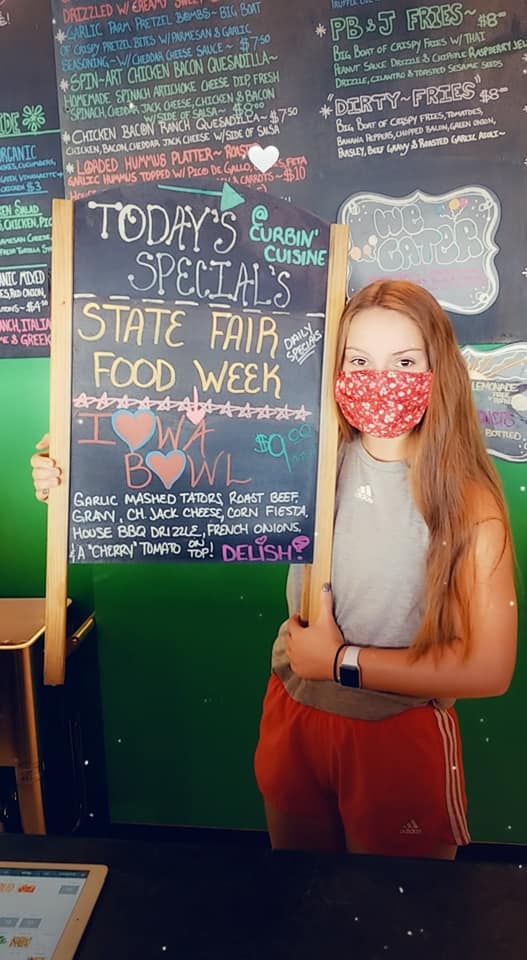 DRIZZLED W/CREAMY SWEET
*GARLIC PARM PRETZEL BOMBS~ BIG BOAT
OF CRISPY PRETZEL BITES W/PARMESAN & GARLIC
SEASONING~W/CHEDDAR CHEESE SAUCE~ $7.50
*SPIN~ART CHICKEN BACON QUESADILLA~
HOMEMADE SPINACH ARTICHOKE CHEESE DIP, FRESH
SPINACH, CHEDDAR JACK CHEESE, CHICKEN & BACON
W/SIDE OF SALSA~ $8.00
*CHICKEN BACON RANCH QUESADILLA~$7.50
CHICKEN, BACON, CHEDDAR JACK CHEESE W/SIDE OF SALSA
*LOADED HUMMUS PLATTER~ ROASTED
GARLIC HUMMUS TOPPED W/ PICO DE GALLO, FETA
& CARROTS~$10
*PB & J FRIES~$8
BIG BOAT OF CRISPY FRIES W/THAI
PEANUT SAUCE DRIZZLE & CHIPOTLE RASPBERRY
DRIZZLE, CILANTRO & TOASTED SESAME SEEDS
*"DIRTY~FRIES" $8
BIG BOAT OF CRISPY FRIES, TOMATOES,
BANANA PEPPERS, CHOPPED BACON, GREEN ONION,
PARSLEY, BEEF GRAVY & ROASTED GARLIC AIOLI~
WE
CATER
LEMONADE
BOTTLED
ORGANIC
CHICKEN $3
SALAD
CHICKEN, PICO,
PARMESAN CHEESE
MIXED
RED ONION,
RANCH, ITALIAN
& GREEK
TODAY'S
SPECIAL'S
@
CURBIN'
CUISINE
STATE FAIR
FOOD WEEK
DAILY
SPECIALS
I♡WA
B♡WL
$9.00
GARLIC MASHED TATORS, ROAST BEEF,
GRAVY, CH. JACK CHEESE, CORN FIESTA,
HOUSE BBQ DRIZZLE, FRENCH ONIONS,
& A "CHERRY" TOMATO ON TOP! DELISH!
adidas
adidas